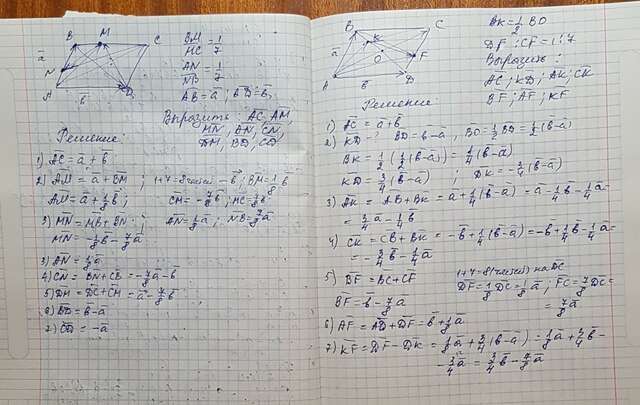 B M C
a
N
A b D
BM/MC = 1/7
AN/NB = 1/7
AB = a; BD = b,
Выразить AC, AM,
MN, AN, CN,
DM, BD, CD
Решение:
1) AC = a + b
2) AM = a + BM; 1+7=8 частей – b; BM = 1/8 b
AM = a + 1/8 b; CM = -7/8 b; MC = 7/8 b
3) MN = MB + BN; AN = 1/8 a; NB = 7/8 a
MN = -1/8 b - 7/8 a
3) AN = 1/8 a
4) CN = BN + CB = -7/8 a - b
5) DM = DC + CM = a - 7/8 b
6) BD = b - a
7) CD = -a
B C
K
a O F
A b D
BK = 1/2 BO
DF : CF = 1:7
Выразить:
AC; KD; AK; CK
BF; AF; KF
Решение:
1) AC = a + b
2) KD - ? BD = b - a, BO = 1/2 BD = 1/2 (b - a)
BK = 1/2 (1/2 (b - a)) = 1/4 (b - a)
KD = 3/4 (b - a); DK = -3/4 (b - a)
3) AK = AB + BK = a + 1/4 (b - a) = a - 1/4 b - 1/4 a =
= 3/4 a - 1/4 b
4) CK = CB + BK = -b + 1/4 (b - a) = -b + 1/4 b - 1/4 a =
= -3/4 b - 1/4 a
5) BF = BC + CF 1+7=8 (частей) на DC
DF = 1/8 DC = 1/8 a; FC = 7/8 DC =
BF = b - 7/8 a = 7/8 a
6) AF = AD + DF = b + 1/8 a
7) KF = DF - DK = 1/8 a + 3/4 (b - a) = 1/8 a + 3/4 b -
- 3/4 a = 3/4 b - 7/8 a